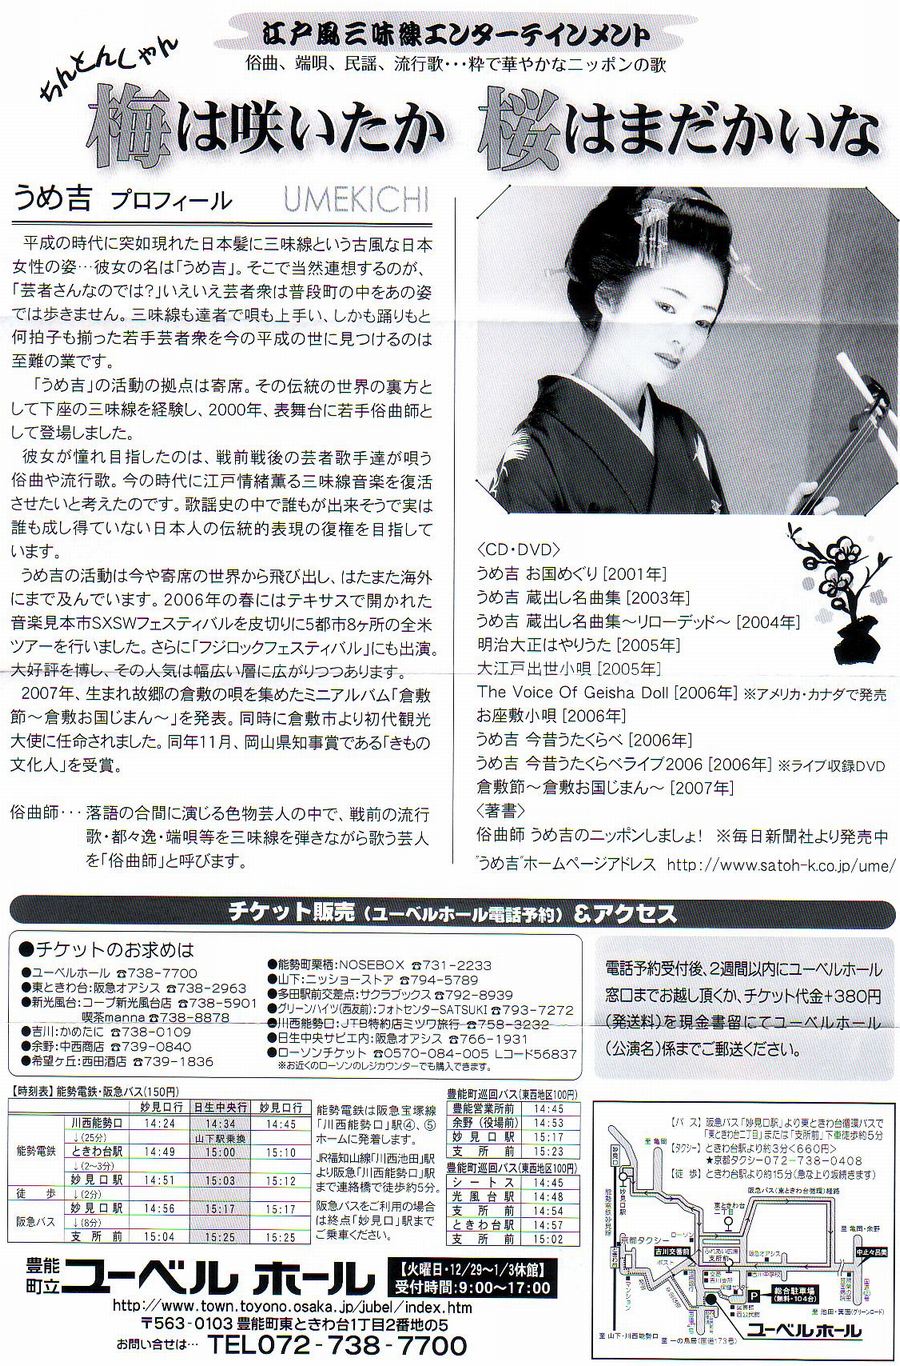 江戸風三味線エンターテインメント
俗曲、端唄、民謡、流行歌･･･粋で華やかなニッポンの歌
ちんとんしゃん
梅は咲いたか 桜はまだかいな
うめ吉 プロフィール UMEKICHI
平成の時代に突如現れた日本髪に三味線という古風な日本
女性の姿…彼女の名は「うめ吉」。そこで当然連想するのが、
「芸者さんなのでは?」いえいえ芸者衆は普段町の中をあの姿
では歩きません。三味線も達者で唄も上手い、しかも踊りもと
何拍子も揃った若手芸者衆を今の平成の世に見つけるのは
至難の業です。
「うめ吉」の活動の拠点は寄席。その伝統の世界の裏方と
して下座の三味線を経験し、2000年、表舞台に若手俗曲師と
して登場しました。
彼女が憧れ目指したのは、戦前戦後の芸者歌手達が唄う
俗曲や流行歌。今の時代に江戸情緒薫る三味線音楽を復活
させたいと考えたのです。歌謡史の中で誰もが出来そうで実は
誰も成し得ていない日本人の伝統的表現の復権を目指して
います。
うめ吉の活動は今や寄席の世界から飛び出し、はたまた海外
にまで及んでいます。2006年の春にはテキサスで開かれた
音楽見本市SXSWフェスティバルを皮切りに5都市8ヶ所の全米
ツアーを行いました。さらに「フジロックフェスティバル」にも出演。
大好評を博し、その人気は幅広い層に広がりつつあります。
2007年、生まれ故郷の倉敷の唄を集めたミニアルバム「倉敷
節～倉敷お国じまん～」を発表。同時に倉敷市より初代観光
大使に任命されました。同年11月、岡山県知事賞である「きもの
文化人」を受賞。
俗曲師･･･落語の合間に演じる色物芸人の中で、戦前の流行
歌・都々逸・端唄等を三味線を弾きながら歌う芸人
を「俗曲師」と呼びます。
〈CD・DVD〉
うめ吉 お国めぐり [2001年]
うめ吉 蔵出し名曲集 [2003年]
うめ吉 蔵出し名曲集～リローデッド～ [2004年]
明治大正はやりうた [2005年]
大江戸出世小唄 [2005年]
The Voice Of Geisha Doll [2006年] ※アメリカ・カナダで発売
お座敷小唄 [2006年]
うめ吉 今昔うたくらべ [2006年]
うめ吉 今昔うたくらべライブ2006 [2006年] ※ライブ収録DVD
倉敷節～倉敷お国じまん～ [2007年]
〈著書〉
俗曲師 うめ吉のニッポンしましょ! ※毎日新聞社より発売中
"うめ吉"ホームページアドレス http://www.satoh-k.co.jp/ume/
チケット販売(ユーベルホール電話予約)&アクセス
●チケットのお求めは
●ユーベルホール ☎738-7700
●東ときわ台:阪急オアシス ☎738-2963
●新光風台:コープ新光風台店 ☎738-5901
喫茶manna ☎738-8878
●吉川:かめたに ☎738-0109
●余野:中西商店 ☎739-0840
●希望ヶ丘:西田酒店 ☎739-1836
●能勢町栗栖:NOSEBOX ☎731-2233
●山下:ニッショーストア ☎794-5789
●多田駅前交差点:サクラブックス ☎792-8939
●グリーンハイツ(西友前):フォトセンターSATSUKI ☎793-7272
●川西能勢口:JTB特約店ミツワ旅行 ☎758-3232
●日生中央サピエ内:阪急オアシス ☎766-1931
●ローソンチケット ☎0570-084-005 Lコード56837
※お近くのローソンのレジカウンターでも購入できます。
電話予約受付後、2週間以内にユーベルホール
窓口までお越し頂くか、チケット代金+380円
(発送料)を現金書留にてユーベルホール
(公演名)係までご郵送ください。
【時刻表】能勢電鉄・阪急バス(150円)
妙見口行 日生中央行 妙見口行
能勢電鉄 川西能勢口 14:24 14:34 14:45
↓(25分) 山下駅乗換
ときわ台駅 14:49 15:00 15:10
↓(2～3分)
妙見口駅 14:51 15:03 15:12
徒歩 ↓(2分)
阪急バス 妙見口駅 14:56 15:17 15:17
↓(8分)
支所前 15:04 15:25 15:25
能勢電鉄は阪急宝塚線
「川西能勢口」駅④、⑤
ホームに発着します。
JR福知山線「川西池田」駅
より阪急「川西能勢口」駅
まで連絡橋で徒歩約5分。
阪急バスご利用の場合
は終点「妙見口」駅まで
ご乗車ください。
豊能町巡回バス(東西地区100円)
豊能営業所前 14:45
余野(役場前) 14:53
妙見口駅 15:17
支所前 15:23
豊能町巡回バス(西地区100円)
シートス 14:45
光風台駅 14:48
支所前 14:54
ときわ台駅 14:57
妙見口駅 15:02
【バス】阪急バス「妙見口駅」より東ときわ台循環バスで
「東ときわ台二丁目」または「支所前」下車徒歩約5分
【タクシー】ときわ台駅より約3分<660円>
★京都タクシー072-738-0408
【徒歩】ときわ台駅より約15分(急な上り坂続きます)
至 亀岡
阪急バス(東ときわ台循環)経路
妙見口駅
東ときわ台
二丁目
京都タクシー
ローソン
ポスト
吉川交番前
ふれあい広場
支所前
阪急オアシス
吉川中学校
至 亀岡・余野
中止々呂美
P 総合駐車場
(無料・104台)
ユーベルホール
至 山下・川西能勢口
至 一の鳥居(国道173号)
至 池田・箕面(グリーンロード)
豊能
町立 ユーベルホール
【火曜日・12/29～1/3休館】
受付時間:9:00～17:00
http://www.town.toyono.osaka.jp/jubel/index.htm
〒563-0103 豊能町東ときわ台1丁目2番地の5
お問い合せは… TEL072-738-7700